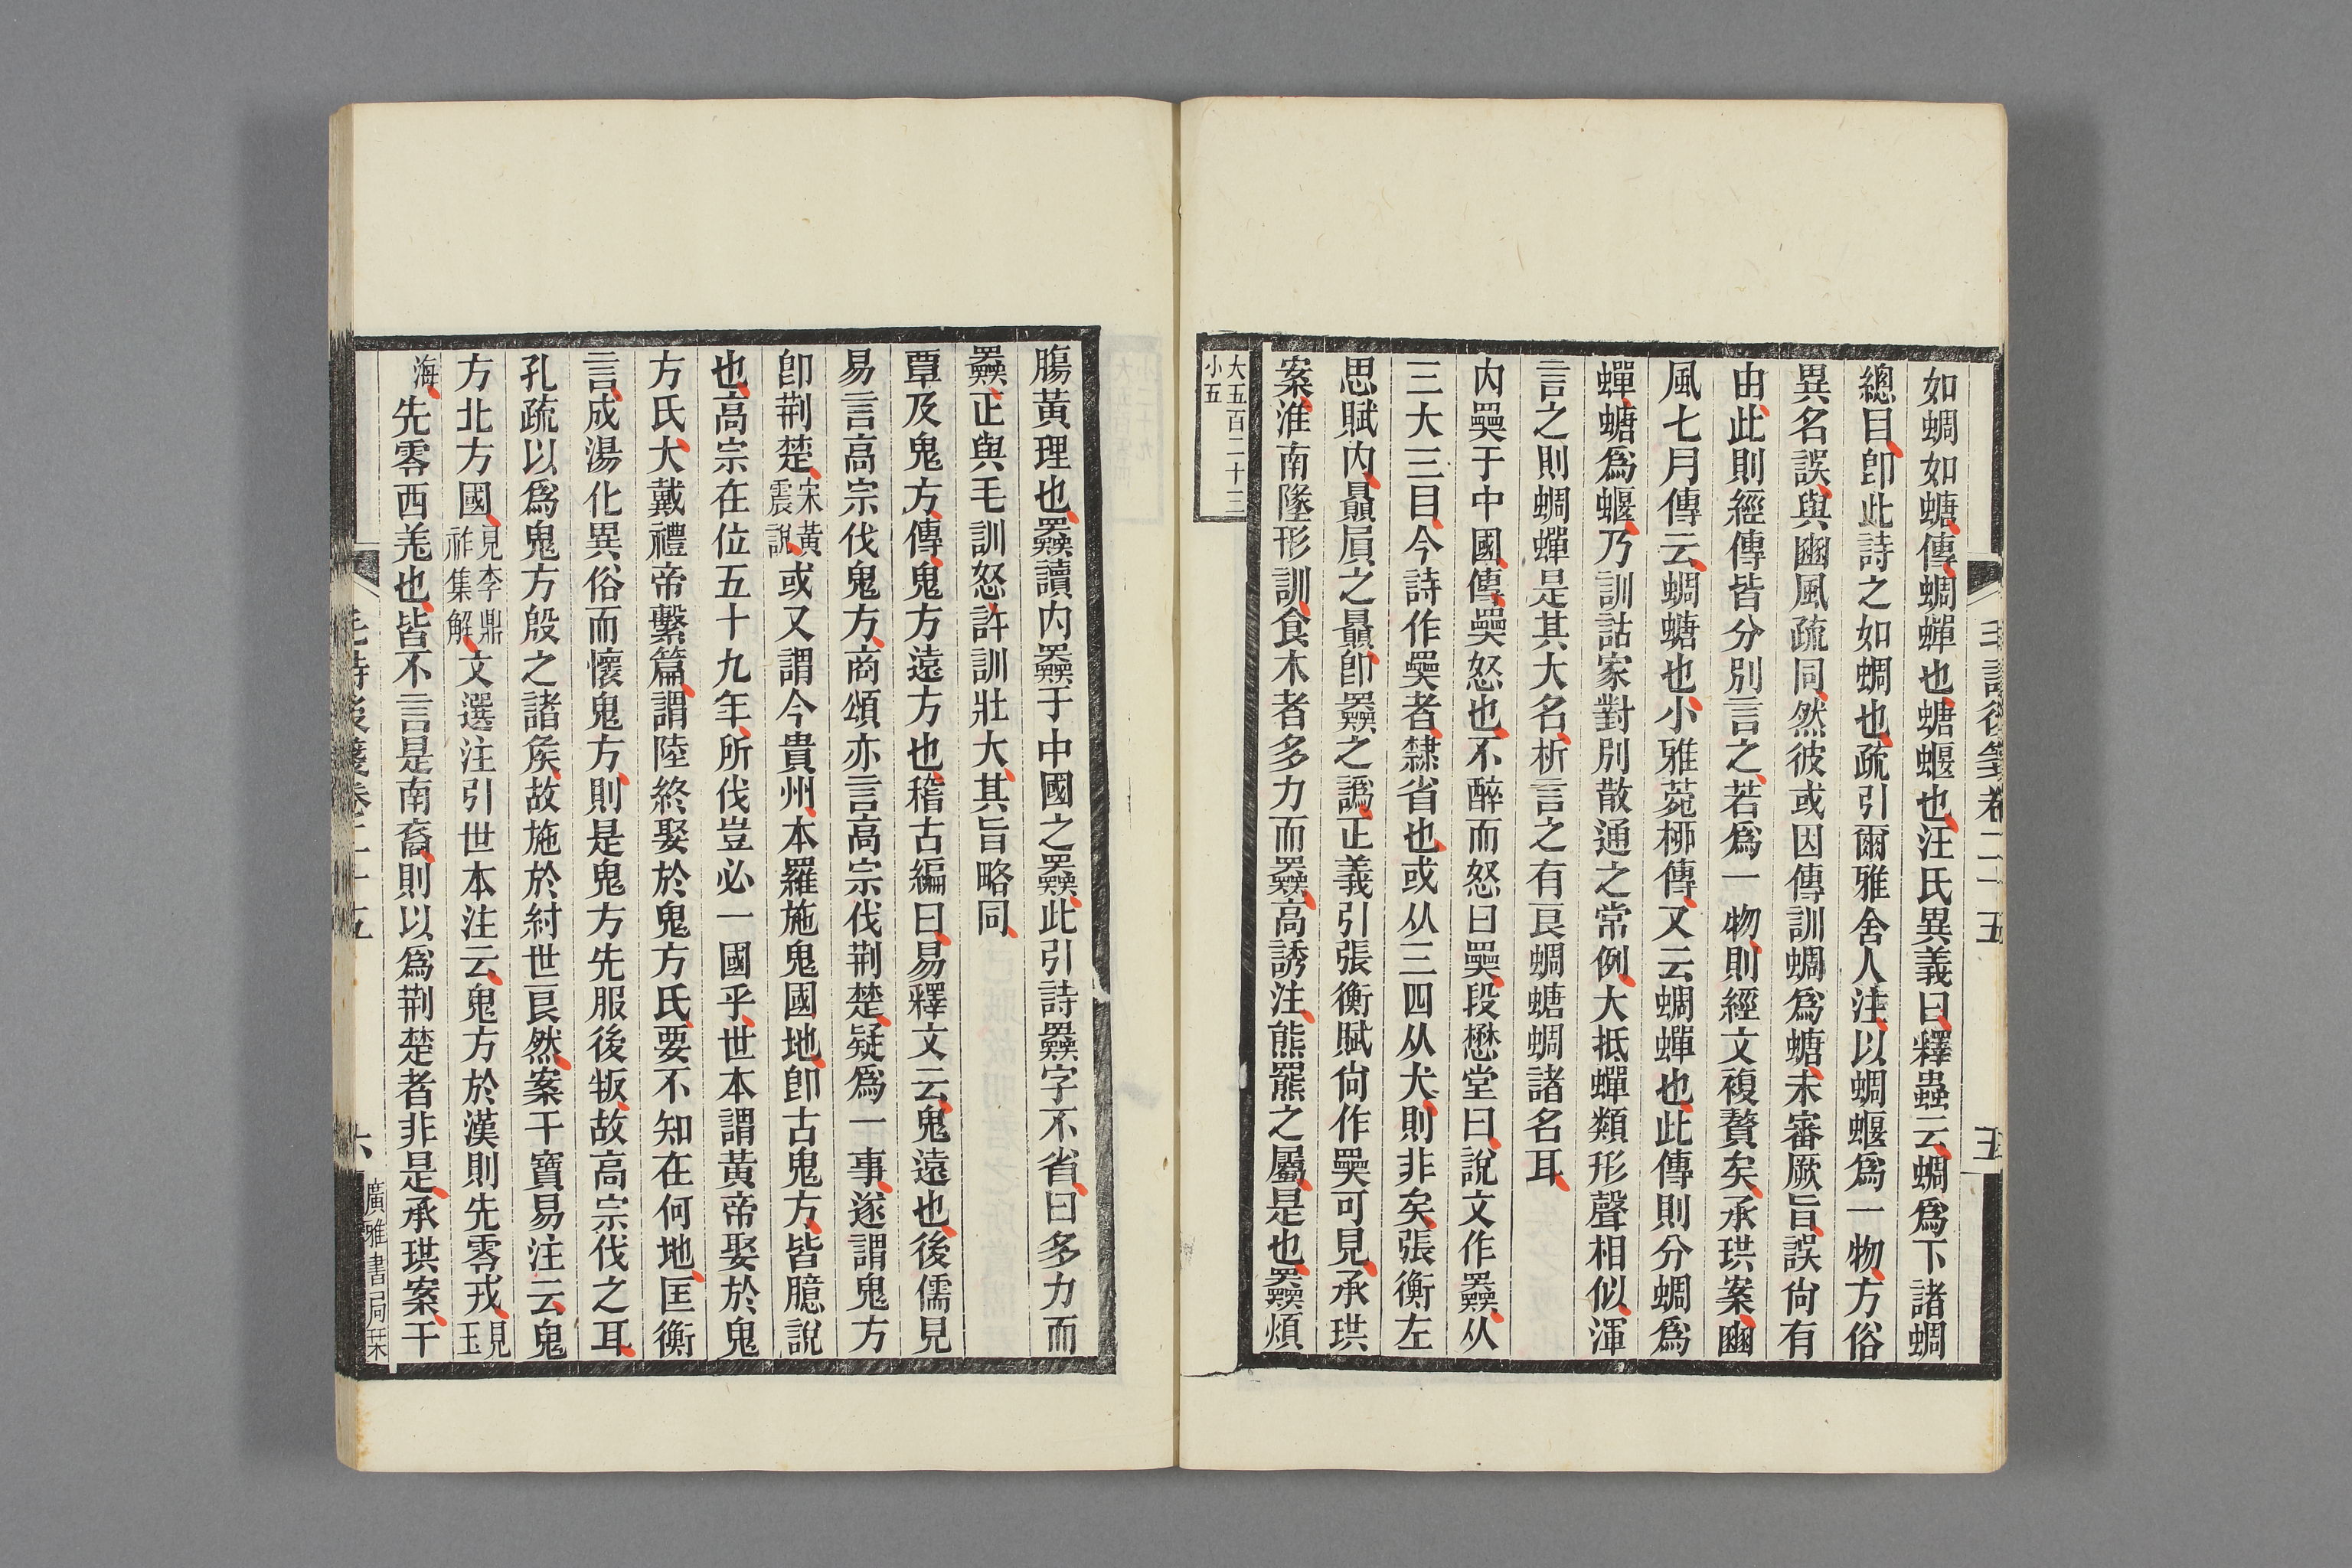 如蜩如螗傳蜩蟬也螗蝘也汪氏異義曰釋蟲云蜩爲下諸蜩
總目卽此詩之如蜩也疏引爾雅舍人注以蜩蝘爲一物方俗
異名誤與豳風疏同然彼或因傳訓蜩爲螗未審厥旨誤尙有
由此則經傳皆分別言之若爲一物則經文複贅矣承珙案豳
風七月傳云蜩螗也小雅菀桺傳又云蜩蟬也此傳則分蜩爲
蟬螗爲蝘乃訓詁家對別散通之常例大抵蟬類形聲相似渾
言之則蜩蟬是其大名析言之有艮蜩螗蜩諸名耳
内奰于中國傳奰怒也不醉而怒曰奰段懋堂曰說文作𡚤从
三大三目今詩作奰者隸省也或从三四从犬則非矣張衡左
思賦内贔屓之贔卽𡚤之譌正義引張衡賦尙作奰可見承珙
案淮南墬形訓食木者多力而𡚤高誘注熊羆之屬是也𡚤煩
大五百二十三
小五
腸黃理也𡚤讀内𡚤于中國之𡚤此引詩𡚤字不省曰多力而
𡚤正與毛訓怒許訓壯大其旨略同
覃及鬼方傳鬼方遠方也稽古編曰易釋文云鬼遠也後儒見
易言高宗伐鬼方商頌亦言高宗伐荆楚疑爲一事遂謂鬼方
卽荆楚宋黃震說或又謂今貴州本羅施鬼國地卽古鬼方皆臆說
也高宗在位五十九年所伐豈必一國乎世本謂黃帝娶於鬼
方氏大戴禮帝繫篇謂陸終娶於鬼方氏要不知在何地匡衡
言成湯化異俗而懷鬼方則是鬼方先服後叛故高宗伐之耳
孔疏以爲鬼方殷之諸矦故施於紂世艮然案干寶易注云鬼
方北方國見李鼎祚集解文選注引世本注云鬼方於漢則先零戎見玉
海先零西羌也皆不言是南裔則以爲荆楚者非是承珙案干
毛詩後箋卷二十五
六
廣雅書局栞